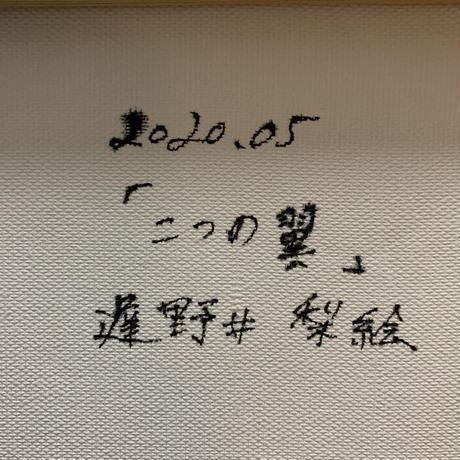 2020.05
「二つの翼」
遅野井 梨絵